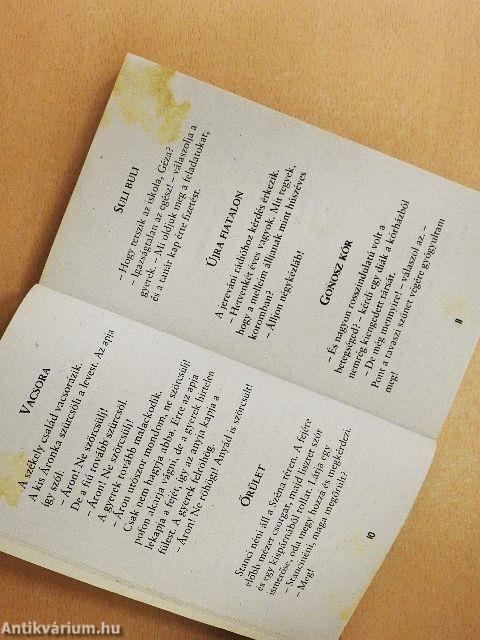 VACSORA
A székely család vacsorázik.
A kis Áronka szürcsöli a levest. Az apja
így szól:
– Áron! Ne szörcsülj!
De a fiú tovább szürcsöl.
– Áron! Ne szörcsülj!
A gyerek tovább malackodik.
– Áron utószor mondom, ne szörcsülj!
Csak nem hagyja abba. Erre az apja
pofon akarja vágni, de a gyerek hirtelen
lekapja a fejét, így az anyja kapja a
fülest. A gyerek felröhög.
– Áron! Ne röhögj! Anyád is szörcsült!
ŐRÜLET
Stanci néni áll a Széna téren. A fejére
előbb mézet csorgat, majd lisztet szór
és egy kispárnából tollat. Látja egy
ismerőse, oda megy hozzá és megkérdezi.
– Stancinéni, maga megőrült?
– Meg!
10
SULI BULI
– Hogy tetszik az iskola, Géza?
– Igazságtalan az egész! – válaszolja a
gyerek. – Mi oldjuk meg a feladatokat,
és a tanár kap érte fizetést.
ÚJRA FIATALON
A jereváni rádióhoz kérdés érkezik.
– Hetvenkét éves vagyok. Mit tegyek,
hogy a melleim álljanak mint húszéves
koromban?
– Álljon négykézláb!
GONOSZ KÓR
– És nagyon rosszindulatú volt a
betegséged? – kérdi egy diák a kórházból
nemrég kiengedett társát.
– De még mennyire! – válaszol az. –
Pont a tavaszi szünet végére gyógyultam
meg!
11
Antikvárium.hu